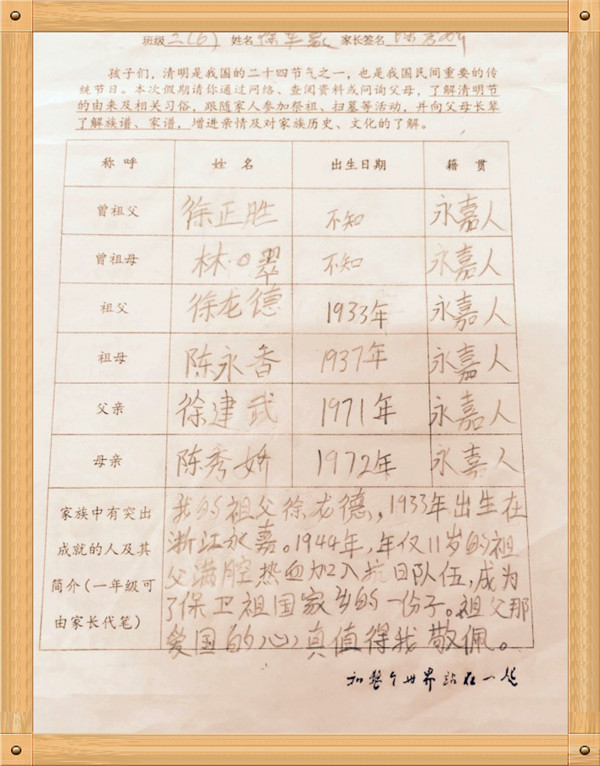 班级 二(6) 姓名 徐 家长签名
孩子们，清明是我国的二十四节气之一，也是我国民间重要的传
统节日。本次假期请你通过网络、查阅资料或问询父母，了解清明节
的由来及相关习俗，跟随家人参加祭祖、扫墓等活动，并向父母长辈
了解族谱、家谱，增进亲情及对家族历史、文化的了解。
称呼 姓名 出生日期 籍贯
曾祖父 徐正胜 不知 永嘉人
曾祖母 林〇翠 不知 永嘉人
祖父 徐龙德 1933年 永嘉人
祖母 陈永香 1937年 永嘉人
父亲 徐建武 1971年 永嘉人
母亲 陈秀娇 1972年 永嘉人
家族中有突出
成就的人及其
简介(一年级可
由家长代笔)
我的祖父徐龙德，1933年出生在
浙江永嘉。1944年，年仅11岁的祖
父满腔热血加入抗日队伍，成为
了保卫祖国家乡的一份子。祖父那
爱国的心，真值得我敬佩。
和整个世界站在一起